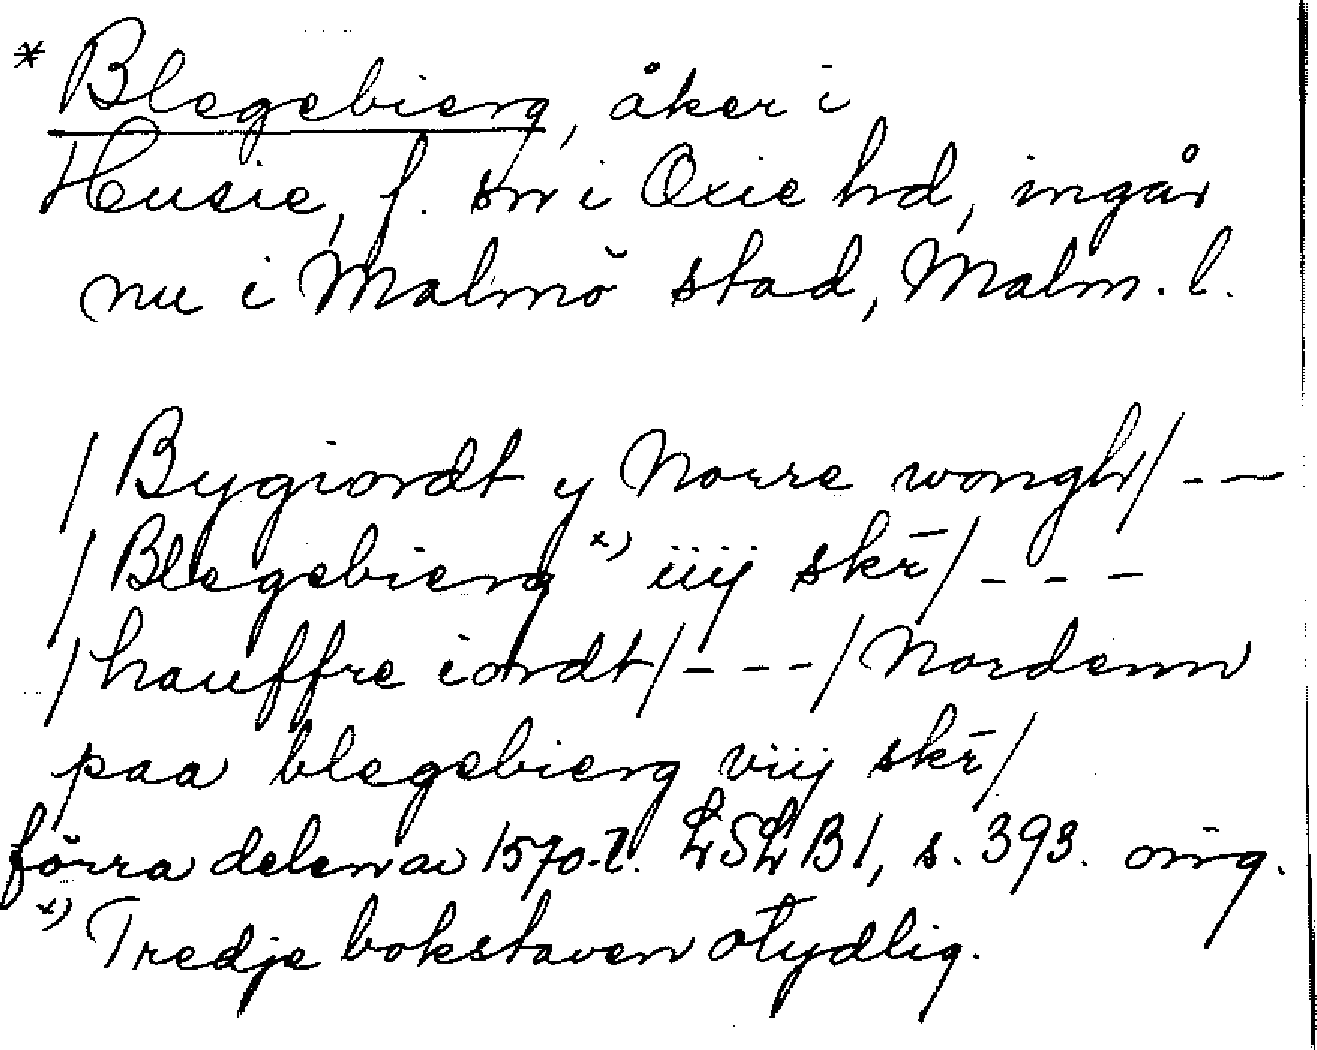 * Blegebierg, åker i
Husie, f. sn i Oxie hd, ingår
nu i Malmö stad, Malm. l.
/Bygiordt y Norre wongh/ - -
/Blegebierg x) iiij skr̄/ - - -
/hauffre iordt/ - - - /Nordenn
paa blegebierg viij skr̄/
förra delen av 1570-t. LSLB1, s. 393. orig.
x) Tredje bokstaven otydlig.